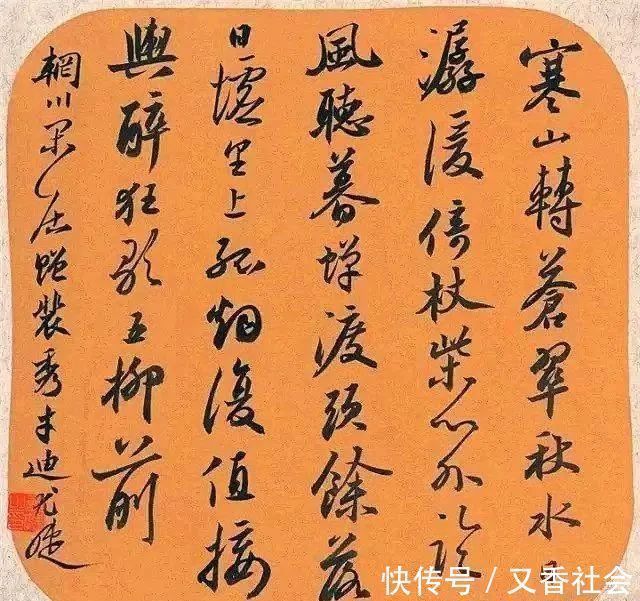 寒山轉蒼翠秋水日
潺湲倚杖柴門外臨
風聽暮蟬渡頭餘落
日墟里上孤烟復值接
輿醉狂歌五柳前
輞川閑居贈裴秀才迪
快传号/又香社会